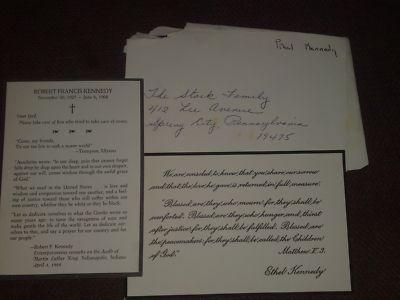 ROBERT FRANCIS KENNEDY
November 20, 1925 – June 6, 1968
Dear God,
Please take care of him who tried to take care of yours.
"Come, my friends,
'Tis not too late to seek a newer world"
—Tennyson, Ulysses
Aeschylus wrote: "In our sleep, pain that cannot forget
falls drop by drop upon the heart and in our own despair,
against our will, comes wisdom through the awful grace
of God."
"What we need in the United States is love and
wisdom and compassion toward one another, and a feel-
ing of justice toward those who still suffer within our
own country, whether they be white or they be black.
"Let us dedicate ourselves to what the Greeks wrote so
many years ago: to tame the savageness of man and
make gentle the life of the world. Let us dedicate our-
selves to that, and say a prayer for our country and for
our people."
—Robert F. Kennedy
Extemporaneous remarks on the death of
Martin Luther King, Indianapolis, Indiana
April 4, 1968
The Stock Family
412 Lee Avenue
Spring City, Pennsylvania
19475
We are consoled to know that you share our sorrow
and that the love he gave is returned in full measure.
"Blessed are they who mourn for they shall be
comforted. Blessed are they who hunger and thirst
after justice for they shall be fulfilled. Blessed are
the peacemakers for they shall be called the Children
of God."
Matthew V.3.
Ethel Kennedy